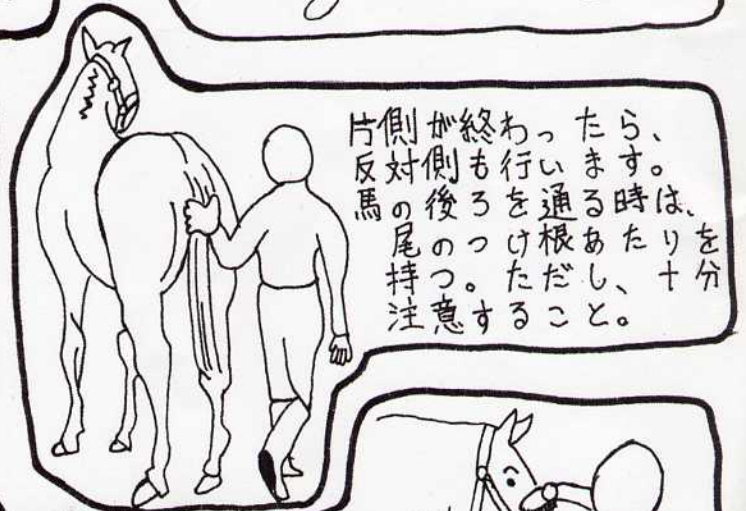 片側が終わったら、
反対側も行います。
馬の後ろを通る時は、
尾のつけ根あたりを
持つ。ただし、十分
注意すること。